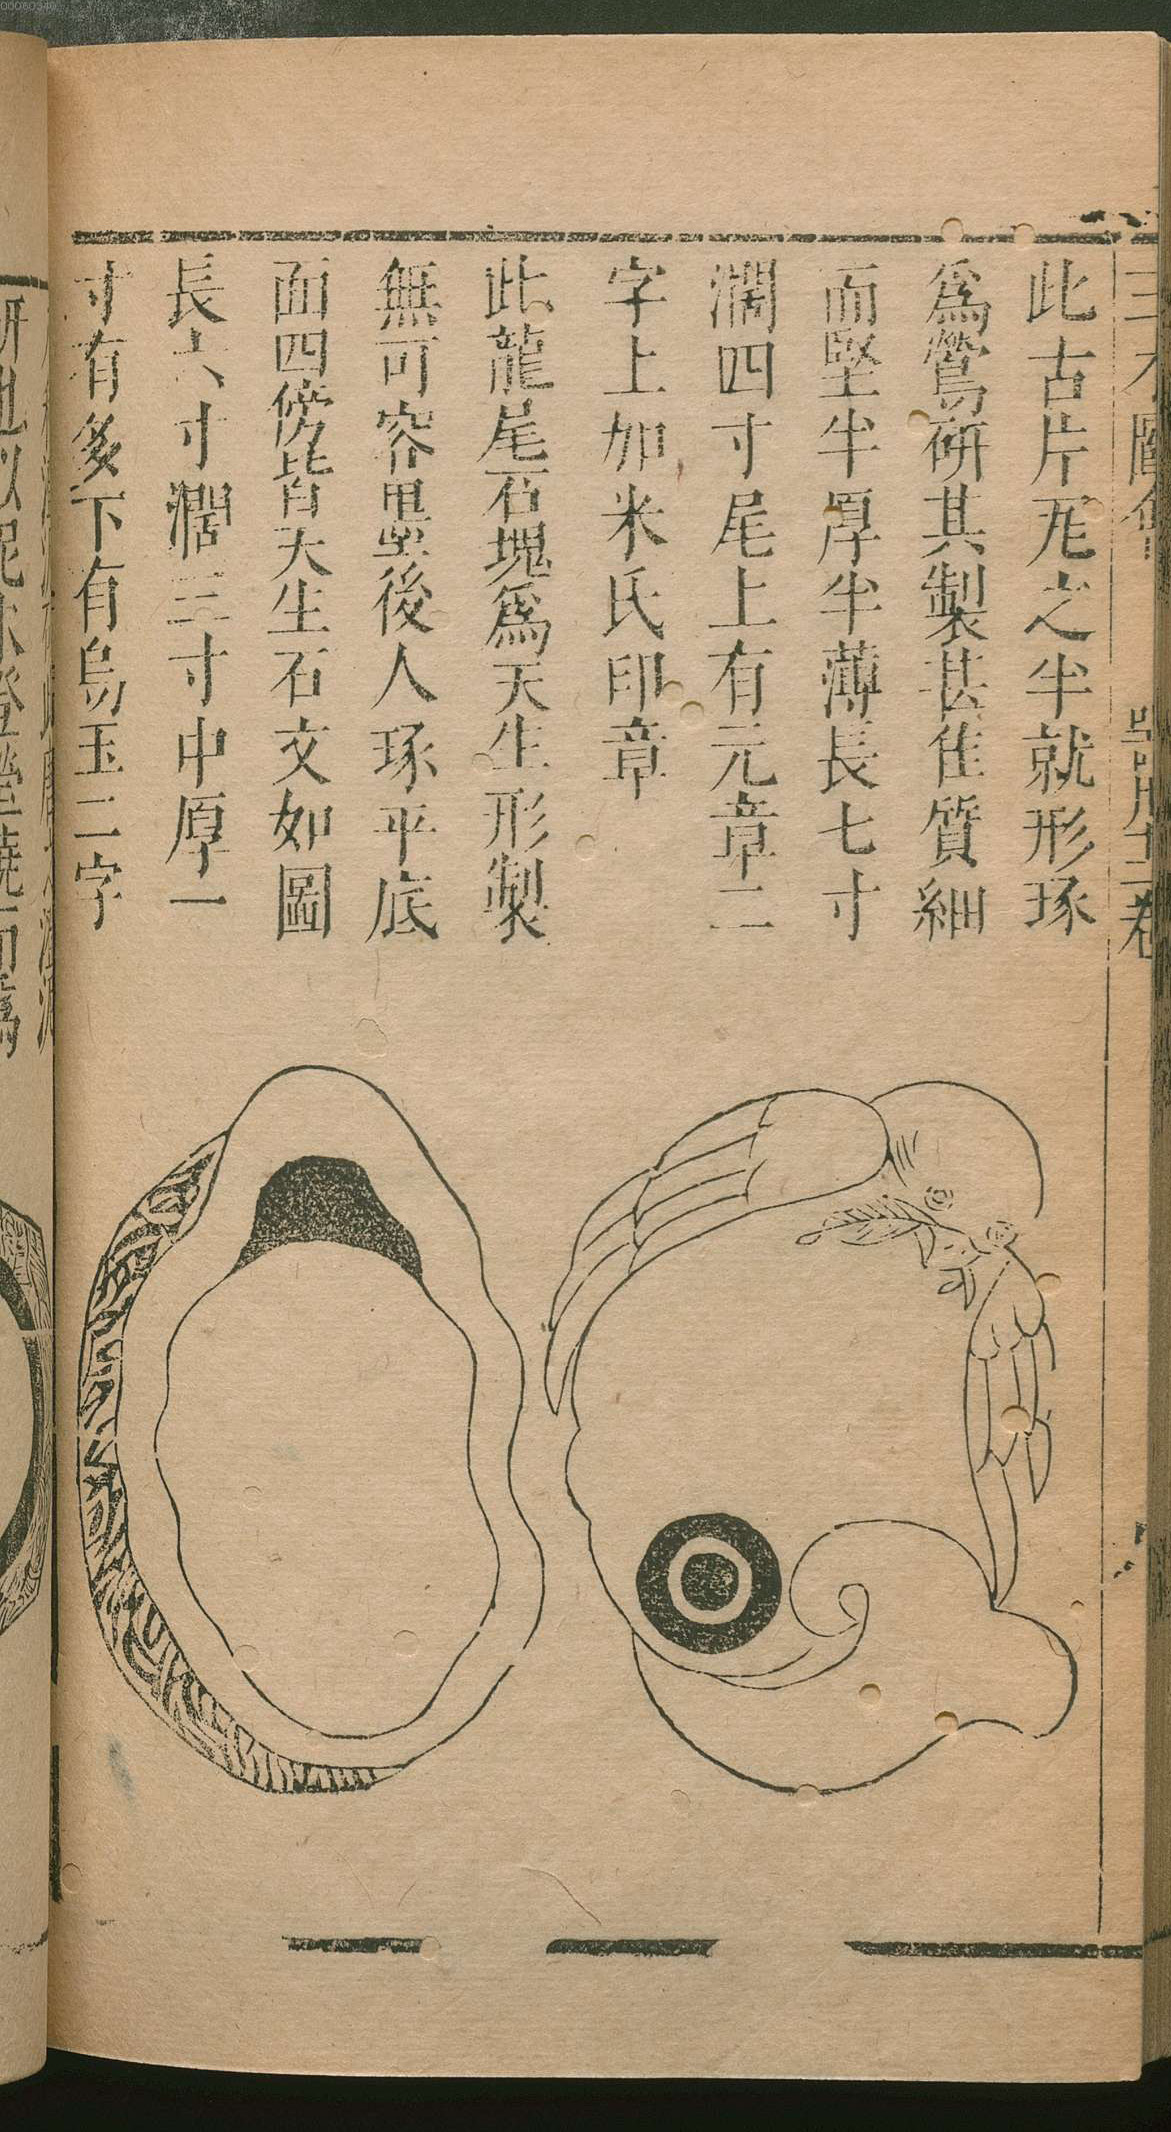 三才圖會
器用十二卷
此古片瓦之半就形琢
爲鶯研其製甚隹質細
而堅半厚半薄長七寸
濶四寸尾上有元章二
字上加米氏印章
此龍尾石塊爲天生形製
無可容墨後人琢平底
面四傍皆天生石文如圖
長六寸濶三寸中厚一
寸有多下有烏玉二字
00060340